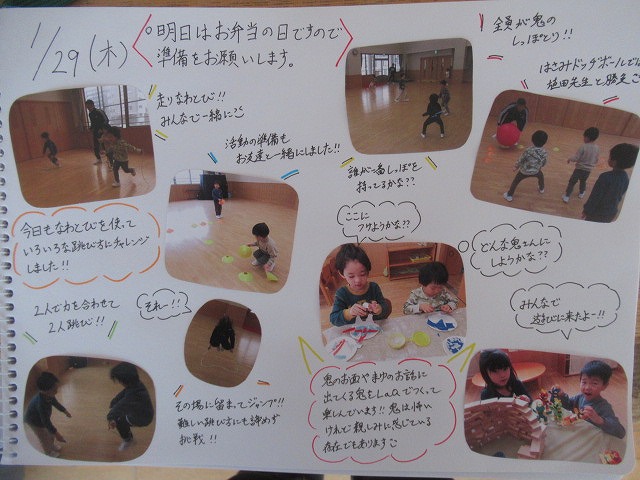 1/29(木)
○明日はお弁当の日ですので
準備をお願いします。
走りなわとび!!
みんなで一緒に
活動の準備も
お友達と一緒にしました!!
今日もなわとびを使って
いろいろな跳び方にチャレンジ
しました!!
2人で力を合わせて
2人跳び!!
それー!!
その場に留まってジャンプ!!
難しい跳び方にも諦めず
挑戦!!
全員が鬼の
しっぽとり!!
誰が一番しっぽを
持ってるかな??
はさみドッヂボールでは
先生と勝負
ここに
つけようかな??
どんな鬼さんに
しようかな??
鬼のお面やまゆのお話に
出てくる鬼をLaQでつくって
楽しんでいます!!鬼は怖い
けれど親しみに感じている
存在でもあります
みんなで
遊びに来たよー!!